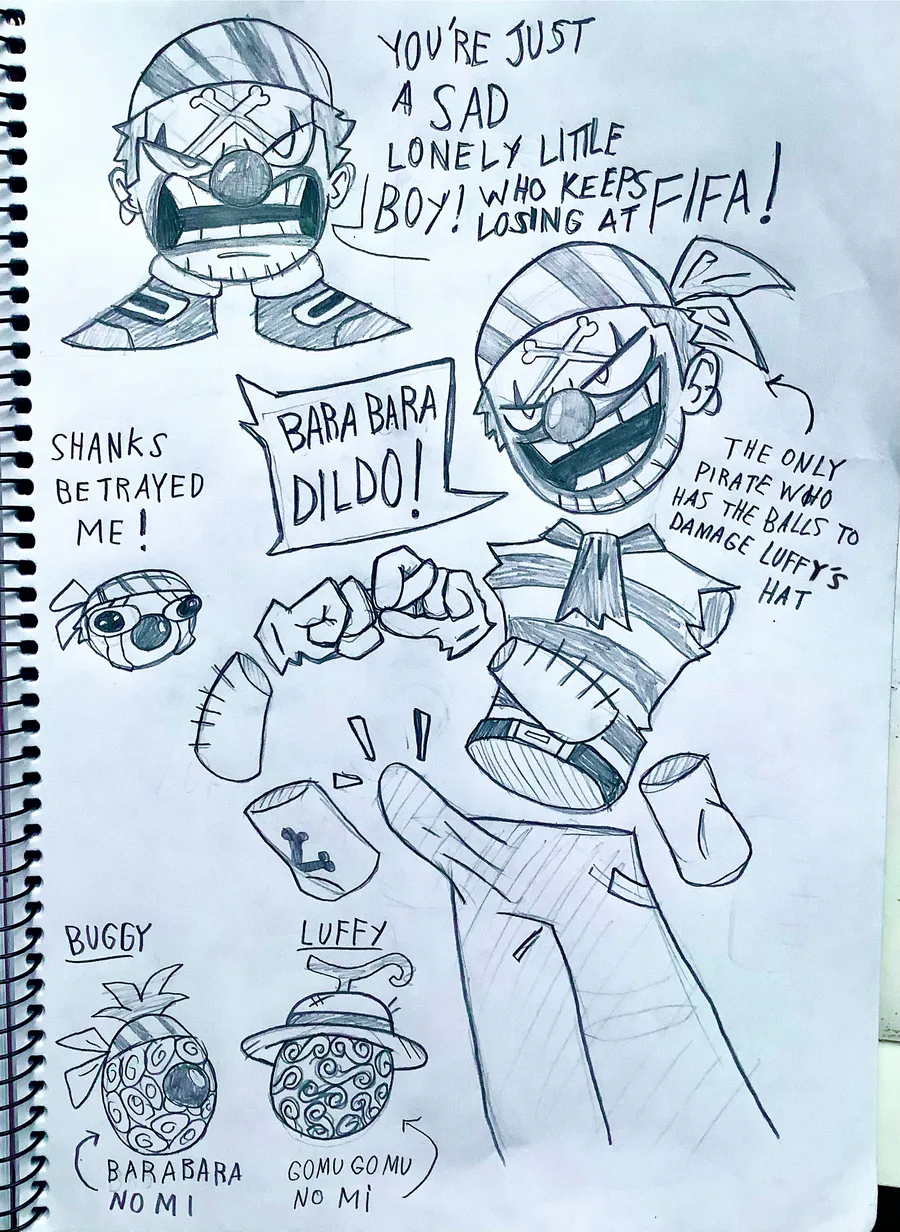 YOU'RE JUST
A SAD
LONELY LITTLE
BOY! WHO KEEPS
LOSING AT FIFA!
BARA BARA
DILDO!
SHANKS
BETRAYED
ME!
THE ONLY
PIRATE WHO
HAS THE BALLS TO
DAMAGE LUFFY'S
HAT
BUGGY
LUFFY
BARABARA
NO MI
GOMU GOMU
NO MI